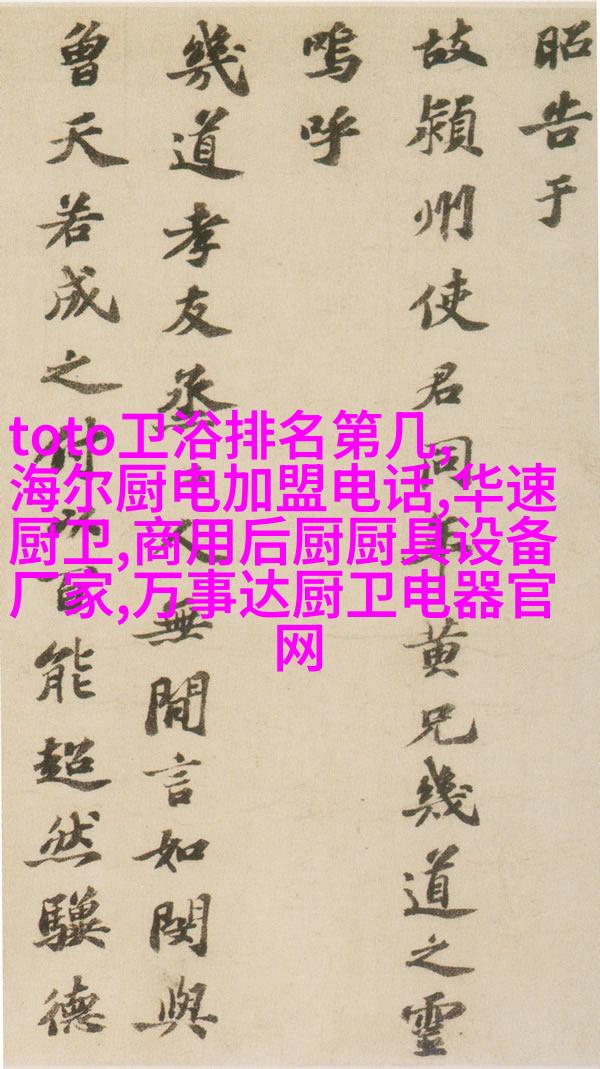 昭告于
故潁州使君同年黄兄幾道之靈
嗚呼
幾道孝友烝人無閒言如閔與
曾天若成之付以百能超然驥德
toto卫浴排名第几,
海尔厨电加盟电话,华速
厨卫,商用后厨厨具设备
厂家,万事达厨卫电器官
网